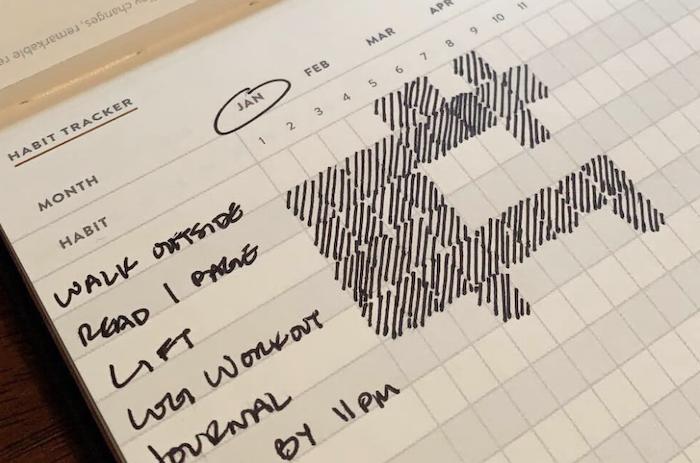 y changes, remarkable re
HABIT TRACKER
MONTH
JAN FEB MAR APR
HABIT
1 2 3 4 5 6 7 8 9 10 11
WALK OUTSIDE
READ 1 PAGE
LIFT
LOG WORKOUT
JOURNAL
BY 11PM